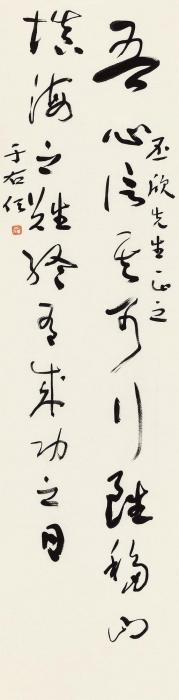 丞欣先生正之
吾心信其可行雖移山
填海之難終有成功之日
于右任